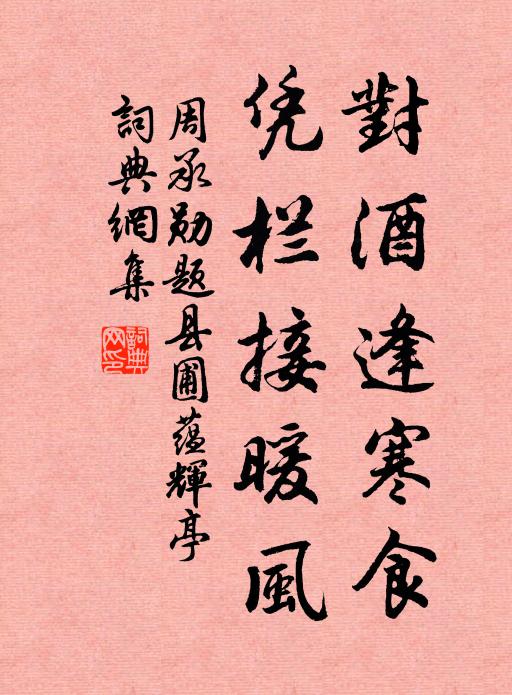 對酒逢寒食
凭栏接暖風
周承勋题县圃蕴輝亭
詞典網集
詞典
网印